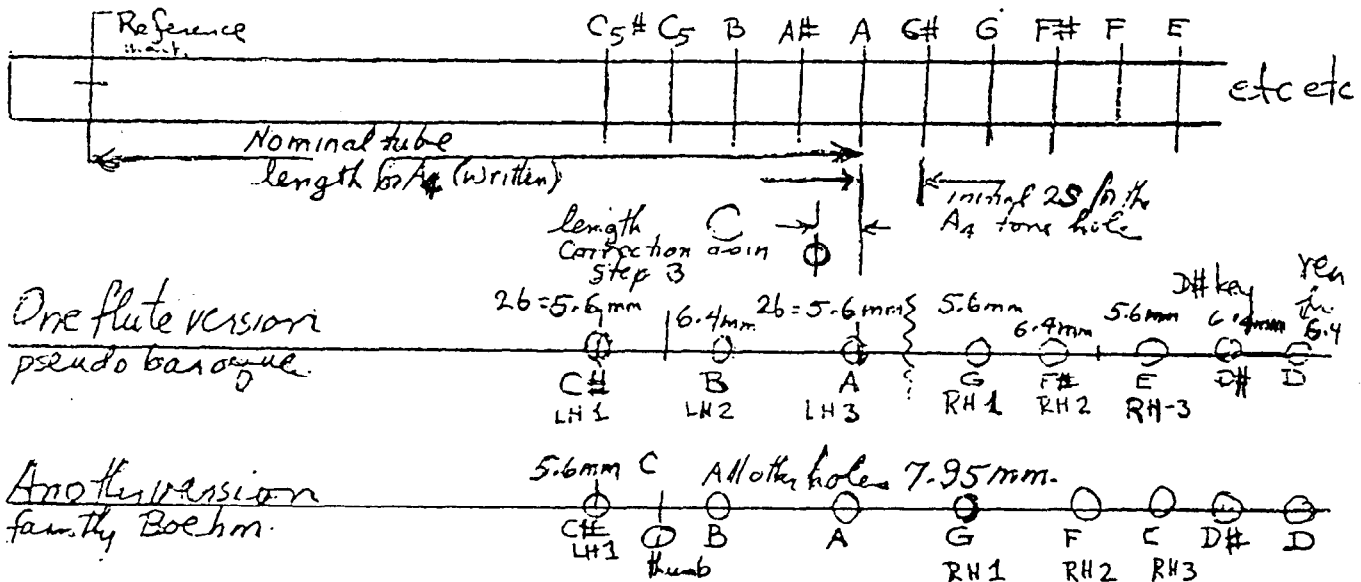 Reference
C5# C5 B A# A G# G F# F E
etc etc
Nominal tube
length for A4 (written)
initial 2S for the
A4 tone hole
length C
correction
Step 3
One flute version
pseudo baroque
2b=5.6mm 6.4mm 2b=5.6mm 5.6mm 6.4mm 5.6mm D# key
C# B A ? G F# E D# D
LH1 LH2 LH3 RH1 RH2 RH-3
Another version
faintly Boehm.
5.6mm C All other holes 7.95mm.
C# B A G F E D# D
LH1 thumb RH1 RH2 RH3